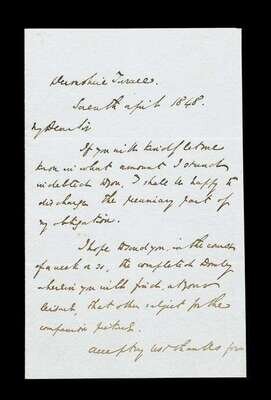 Devonshire Terrace.
Seventh April 1848.
My Dear Sir
If you will kindly let me
know in what amount I stand
indebted to you, I shall be happy to
discharge the pecuniary part of
my obligation.
I hope to send you, in the course
of a week or so, the completed Dombey
wherein you will find, at your
leisure, that other subject for the
companion picture.
accepting best thanks from